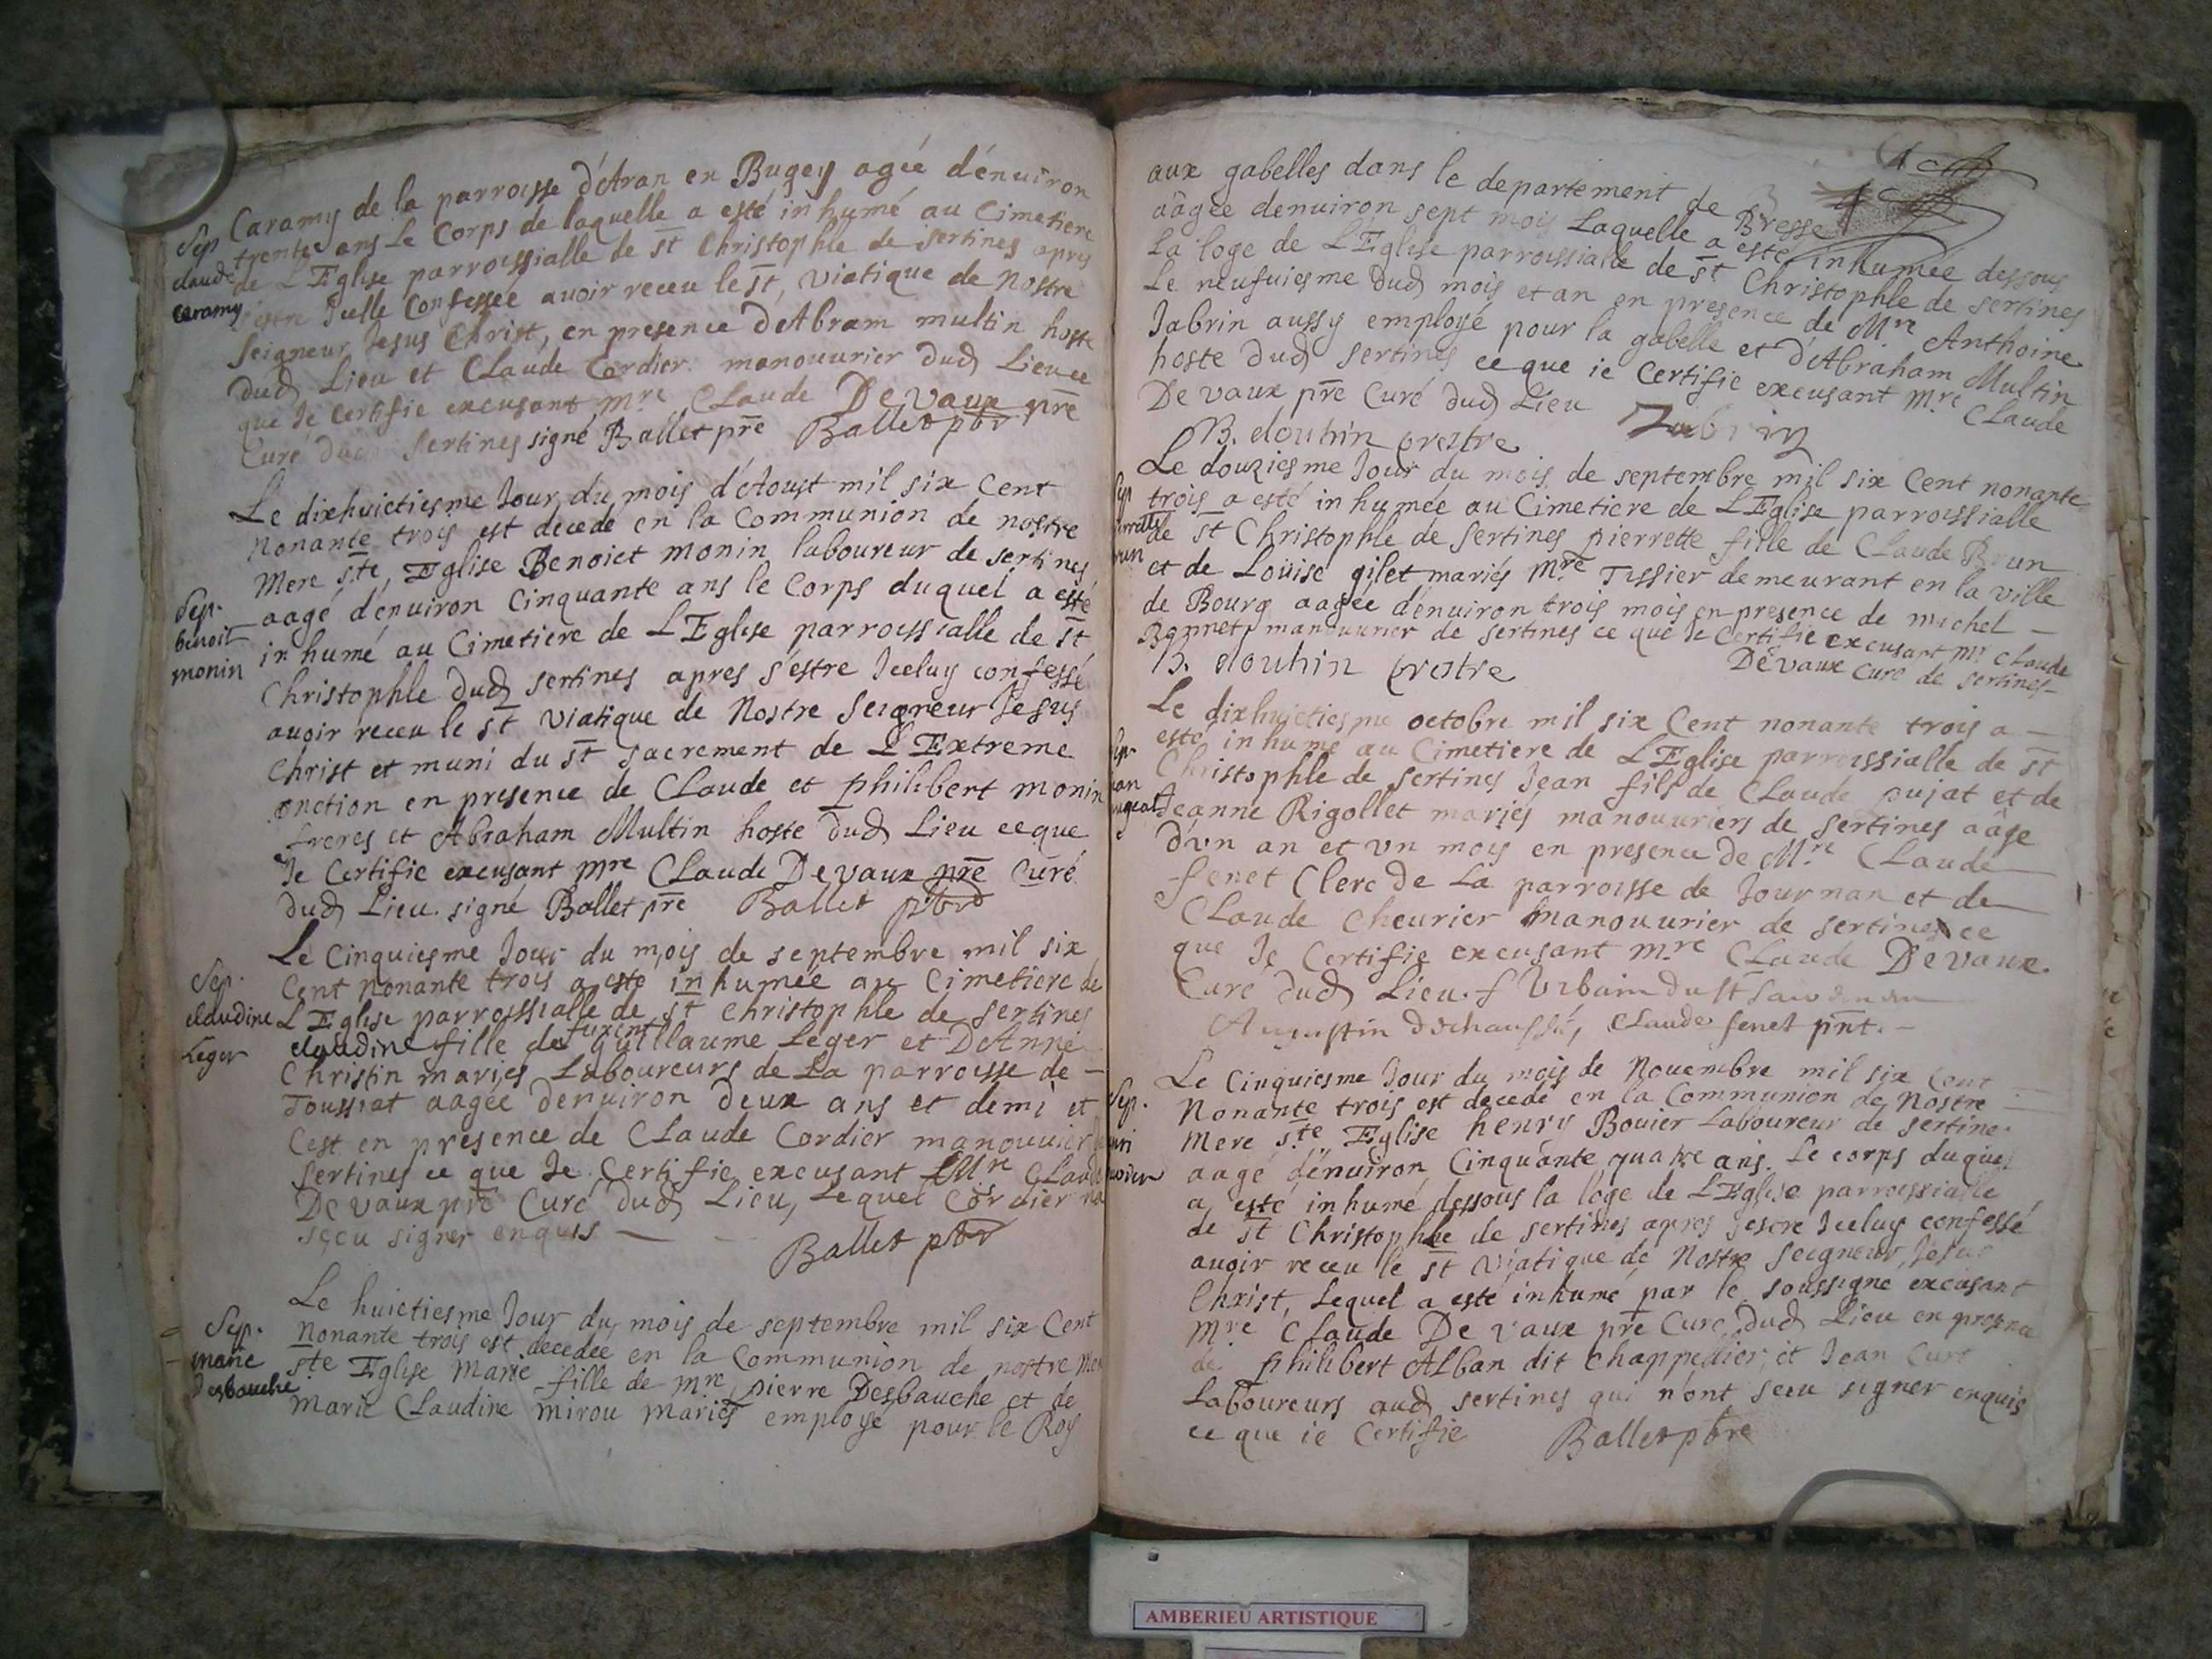 Caramy de la parroisse d'Aran en Bugey agée d'enuiron
Sep claude ceramy
trente ans Le Corps de laquelle a esté inhumé au Cimetiere
de L'Eglise parroissialle de st Christophle de sertines apres
s'estre Icelle Confessée auoir receu le st, viatique de Nostre
Seigneur Jesus Christ, en presence d'Abram multin hoste
dud Lieu et Claude Cordier manouurier dud Lieu ce
que Je certifie excusant mre Claude De vaux pre
Curé dud Sertines signé Ballet pre Ballet pbr
Le dixhuictiesme Jour du mois d'Aoust mil six Cent
Nonante trois est decedé en la Communion de nostre
Mere ste, Eglise Benoict monin laboureur de sertines
Sep. benoit monin
aagé d'enuiron Cinquante ans le Corps duquel a esté
inhumé au Cimetiere de L'Eglise parroissialle de st
Christophle dud sertines apres s'estre Iceluy confessé
auoir receu le st viatique de Nostre Seigneur Jesus
Christ et muni du st sacrement de L'Extreme
onction en presence de Claude et philibert monin
freres et Abraham Multin hoste dud Lieu ce que
Je Certifie excusant mre Claude Devaux pre Curé
dud Lieu. signé Ballet pre Ballet pbr
Le Cinquiesme Jour du mois de septembre mil six
Cent nonante trois a esté inhumée au Cimetiere de
Sep. claudine Leger
L'Eglise parroissialle de st Christophle de sertines
furent
claudine fille de Guillaume Leger et D'Anne
Christin mariés Laboureurs de La parroisse de -
Toussiat aagée denuiron deux ans et demi et
C'est en presence de Claude Cordier manouurier de
sertines ce que Je Certifie excusant Mre Claude
De vaux pre Curé dud Lieu, Lequel Cordier na
sçeu signer enquis -
Ballet pbr
Le huictiesme Jour du mois de septembre mil six Cent
Sep. marie desbauche
nonante trois est decedée en la Communion de nostre Mere
ste Eglise Marie fille de mre pierre Desbauche et de
marie Claudine mirou mariés employé pour le Roy
aux gabelles dans le departement de Bresse
aagée denuiron sept mois Laquelle a esté inhumée dessous
La loge de L'Eglise parroissialle de st Christophle de sertines
Le neufuiesme dud mois et an en presence de Mre Anthoine
Jabrin aussy employé pour la gabelle et d'Abraham Multin
hoste dud sertines ce que ie Certifie excusant mre Claude
De vaux pre Curé dud Lieu Jabrin
B. douhin prestre
Le douziesme Jour du mois de septembre mil six Cent nonante
trois a esté inhumée au Cimetiere de L'Eglise parroissialle
de st Christophle de sertines pierrette fille de Claude Brun
et de Loüise gilet mariés mre Tissier demeurant en la ville
de Bourg aagée d'enuiron trois mois en presence de michel -
Bonnet, manouurier de sertines ce que Je Certifie excusant mr Claude
B. douhin prestre Devaux Curé de sertines -
Le dixhuictiesme octobre mil six Cent nonante trois a -
esté inhumé au Cimetiere de L'Eglise parroissialle de st
Christophle de sertines Jean fils de Claude pujat et de
Jeanne Rigollet mariés manouuriers de sertines aâge
d'vn an et vn mois en presence de Mre Claude
fenet Clerc de La parroisse de Journan et de
Claude Cheurier manouurier de sertines ce
que Je Certifie excusant mre Claude De vaux.
Curé dud Lieu. f Vrbain du st
Augustin dechaussé, Claude fenet pnt. -
Le Cinquiesme Jour du mois de Nouembre mil six Cent
Sep.
Nonante trois est decedé en la Communion de Nostre
Mere ste Eglise henry Bouier Laboureur de sertine
aagé d'enuiron Cinquante quatre ans. Le corps duquel
a esté inhumé dessous la loge de L'Eglise parroissialle
de st Christophle de sertines apres sestre Iceluy confessé
auoir receu le st Viatique de Nostre Seigneur Jesus
Christ, Lequel a esté inhumé par le soussigné excusant
mre Claude De vaux pre Curé dud Lieu en presence
de philibert Alban dit Chappellier, et Jean Curt
Laboureurs aud sertines qui n'ont sceu signer enquis
ce que ie Certifie Ballet pbre
AMBERIEU ARTISTIQUE